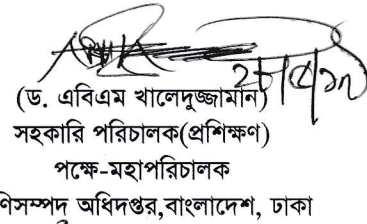 (ড. এবিএম খালেদুজ্জামান)
সহকারি পরিচালক(প্রশিক্ষণ)
পক্ষে-মহাপরিচালক
ণিসম্পদ অধিদপ্তর,বাংলাদেশ, ঢাকা